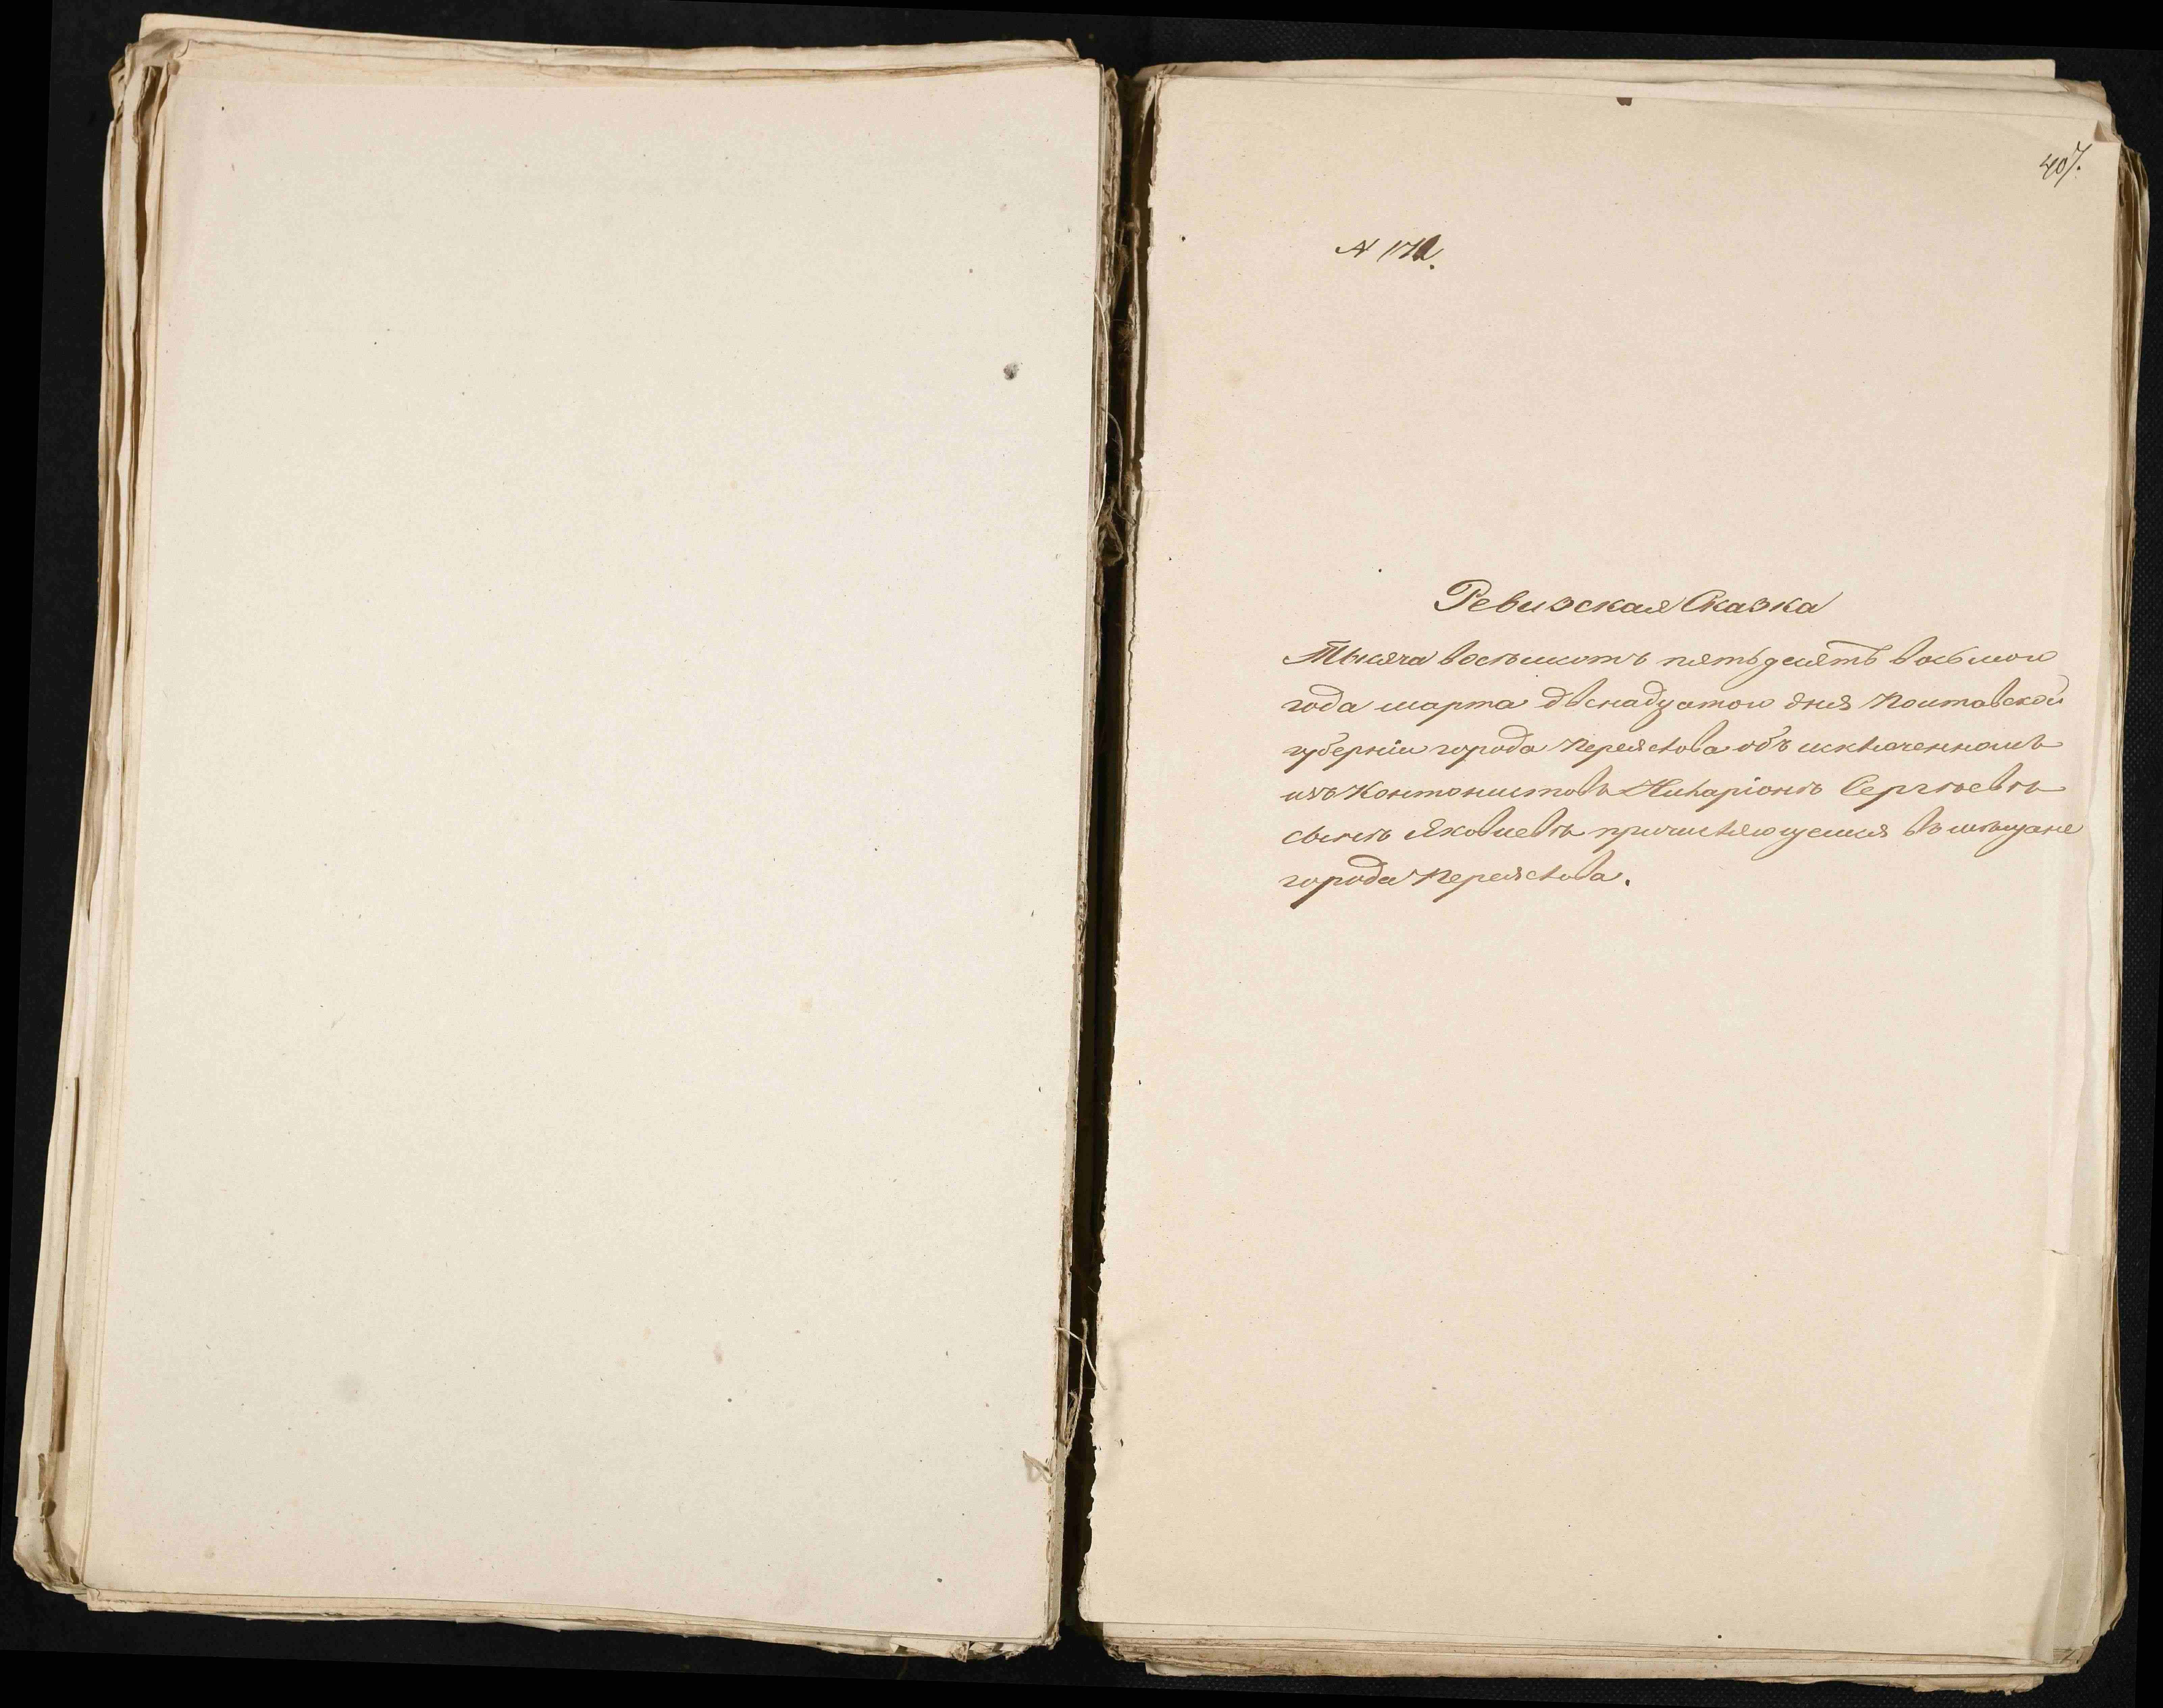 407.
N 172.
Ревизская Сказка
Тысяча восемьсотъ пятьдесятъ восьмого
года марта двенадцатого дня Полтавской
губерніи города Переяслова объ исключенномъ
изъ Контонистовъ Иларіонѣ Сергѣевѣ
сынѣ Яковлевѣ причисляющемся въ мѣщане
города Переяслова.